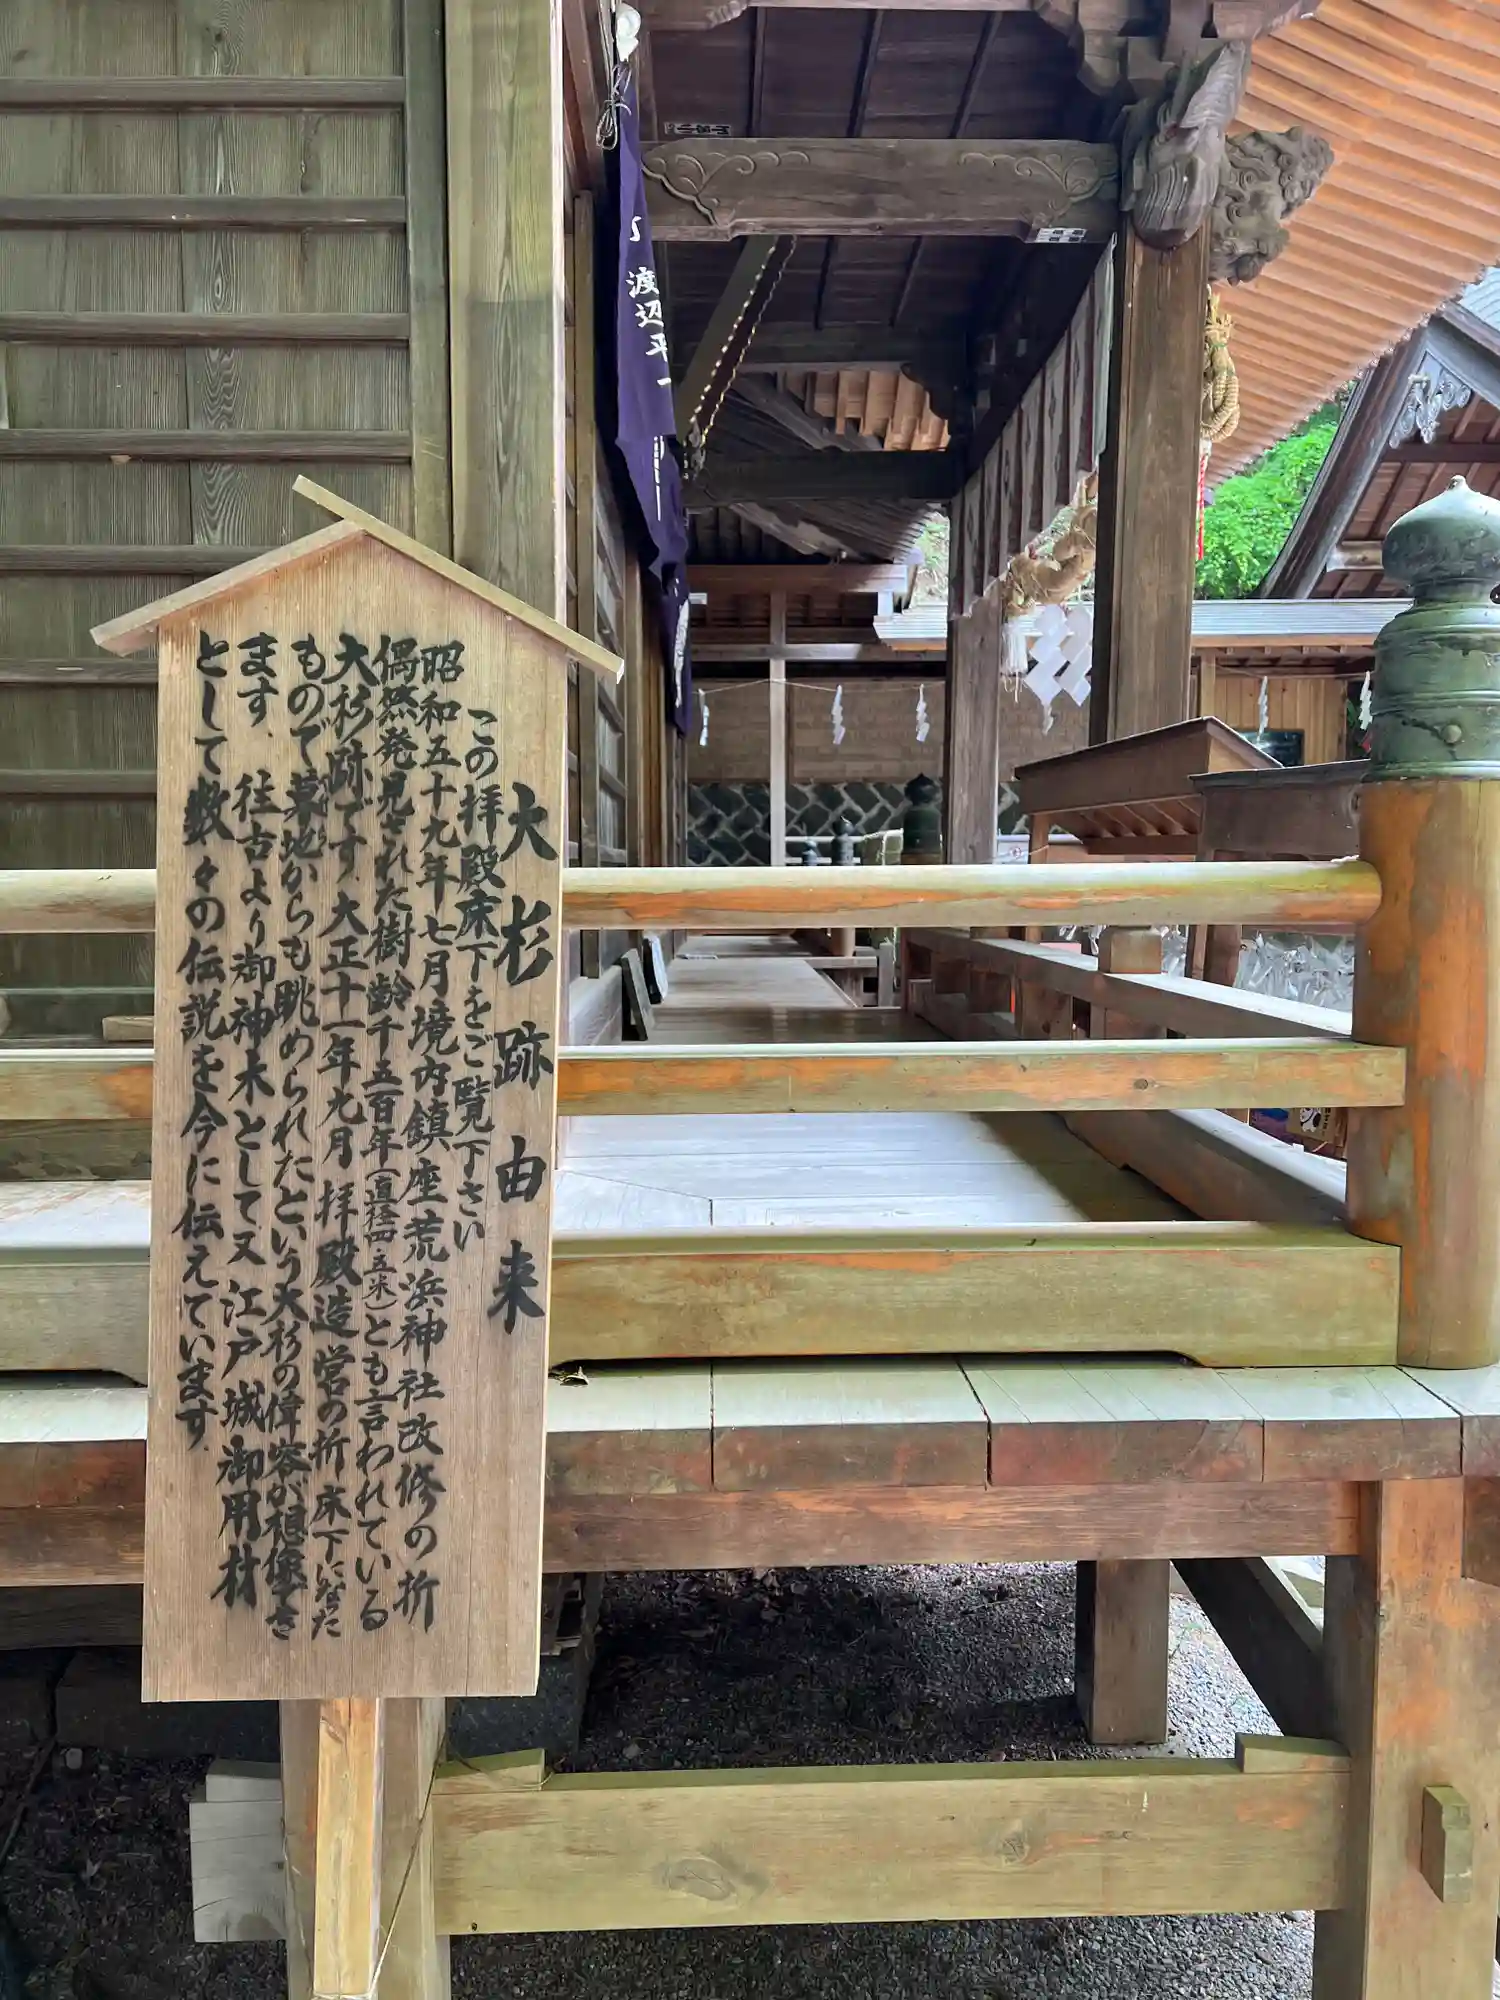 大杉跡由来
この拝殿床下をご覧下さい
昭和五十九年七月境内鎮座荒浜神社改修の折
偶然発見された樹齢千五百年(直径四、五米)とも言われている
大杉跡です。大正十一年九月拝殿造営の折床下になった
もので墓地からも眺められたという大杉の偉容が想像でき
ます。往古より御神木として又江戸城御用材
として数々の伝説を今に伝えています。
渡辺平一